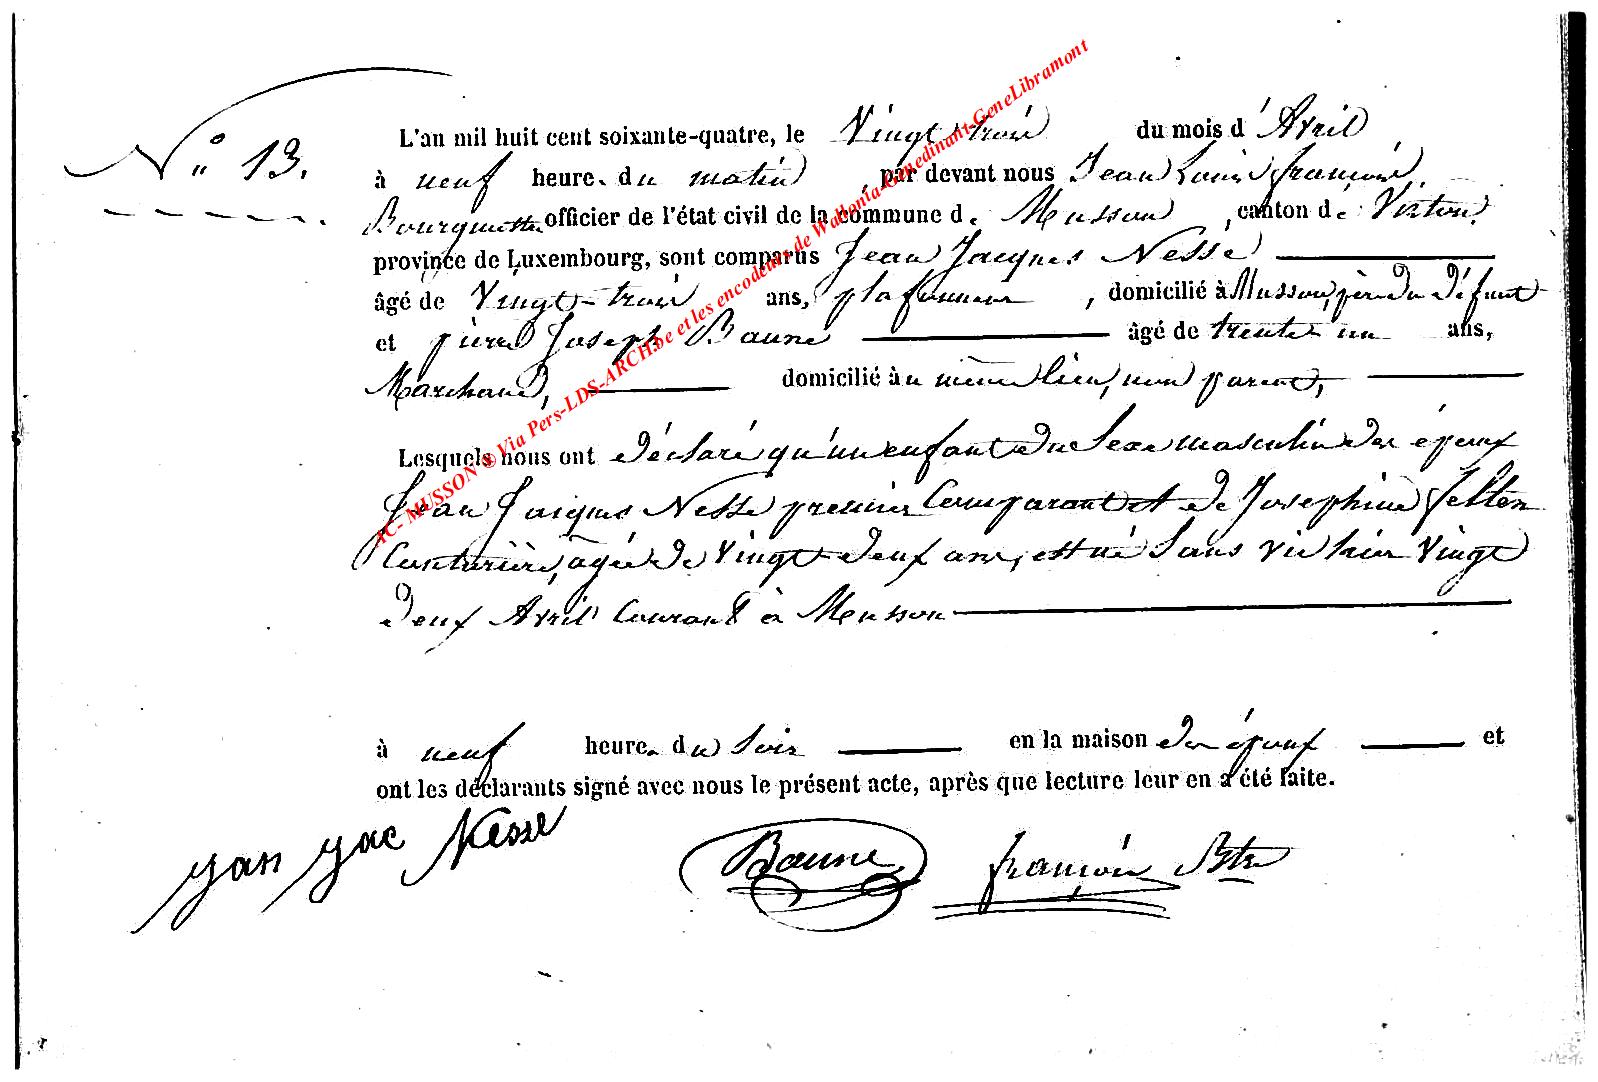 N° 13.
L'an mil huit cent soixante-quatre, le Vingt-trois du mois d'Avril
à neuf heure. du matin, par devant nous Jean Louis françois,
Bourgmestre officier de l'état civil de la commune de Musson, canton de Virton,
province de Luxembourg, sont comparus Jean Jacques Nesse
âgé de Vingt-trois ans, plafonneur, domicilié à Musson, père du défunt
et pierre Joseph Baune âgé de trente un ans,
Marchand, domicilié au même lieu, non parent,
Lesquels nous ont déclaré qu'un enfant du Sexe masculin des époux
Jean Jacques Nesse premier Comparant et de Josephine felten
Couturière, agée de Vingt deux ans, est né Sans vie hier Vingt
deux Avril Courant à Musson
à neuf heure. du Soir en la maison des époux et
ont les déclarants signé avec nous le présent acte, après que lecture leur en a été faite.
yan yac Nesse Baune françois Btre
IC- MUSSON © Via Pers-LDS-ARCH.be et les encodeurs de Wallonia-Genedinant-GeneLibramont